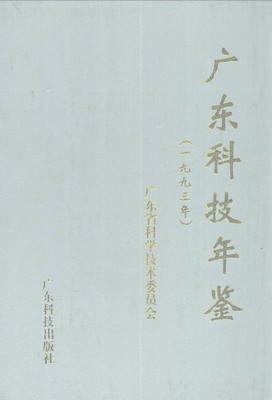 广东科技年鉴
(一九九三年)
广东省科学技术委员会
广东科技出版社